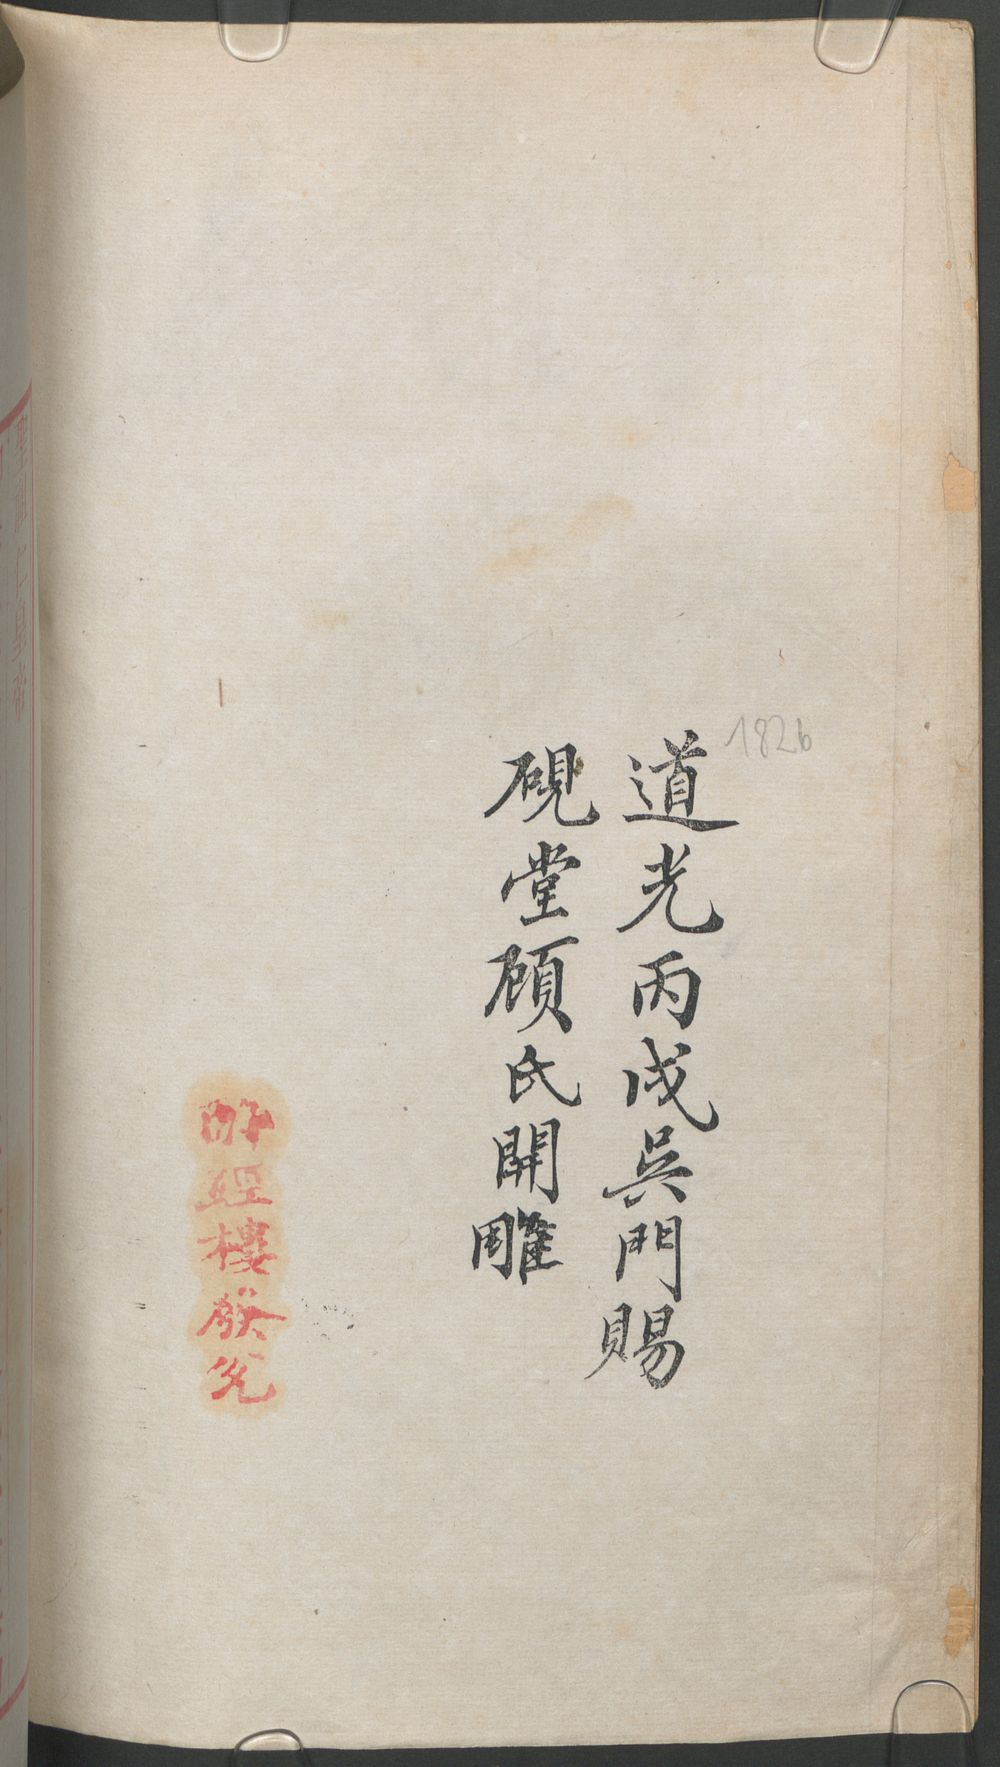 1826
道光丙戌吳門賜
硯堂顧氏開雕
經樓發兌
聖祖仁皇帝